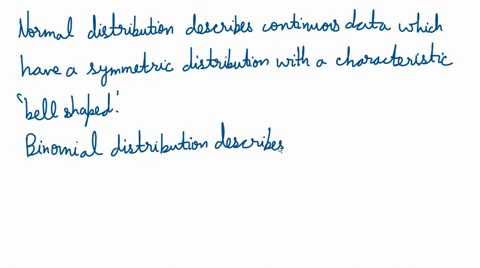 Normal distribution describes continuous data which
have a symmetric distribution with a characteristic
'bell shaped'.
Binomial distribution describes